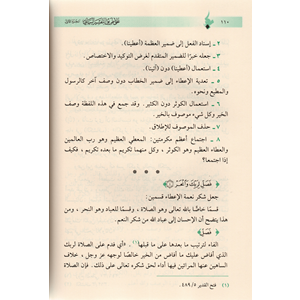 ١١٠
على طريق التفسير البياني - الجزء الأول
٢ ـ إسناد الفعل إلى ضمير العظمة (أعطينا).
٣ ـ جعله خبرًا للضمير المتقدم لغرض التوكيد والاختصاص.
٤ ـ استعمال (أعطينا) دون (آتينا).
٥ ـ تعدية الإعطاء إلى ضمير الخطاب دون وصف آخر كالرسول
والمطيع ونحوه.
٦ ـ استعمال الكوثر دون الكثير. وقد جمع في هذه اللفظة وصف
الخير وكل شيء موصوف بالخير.
٧ ـ حذف الموصوف للإطلاق.
٨ ـ اجتماع أعظم مكرمتين: المعطي العظيم وهو رب العالمين
والعطاء العظيم وهو الكوثر، وكل منهما تكريم ما بعده تكريم، فكيف
إذا اجتمعا؟
* * *
﴿فَصَلِّ لِرَبِّكَ وَٱنْحَرْ﴾
جعل شكر نعمة الإعطاء قسمين:
قسمًا خاصًا بالله تعالى وهو الصلاة، وقسمًا للعباد وهو النحر، ومن
هذا يتضح أن الإحسان إلى عباد الله من شكر النعم.
﴿فَصَلِّ﴾
الفاء لترتيب ما بعدها على ما قبلها(١). «أي فدم على الصلاة لربك
الذي أفاض عليك ما أفاض من الخير خالصًا لوجهه عز وجل، خلاف
الساهين عنها المرائين فيها أداء لحق شكره تعالى على ذلك. فإن الصلاة
(١) فتح القدير ٤٨٩/٥.